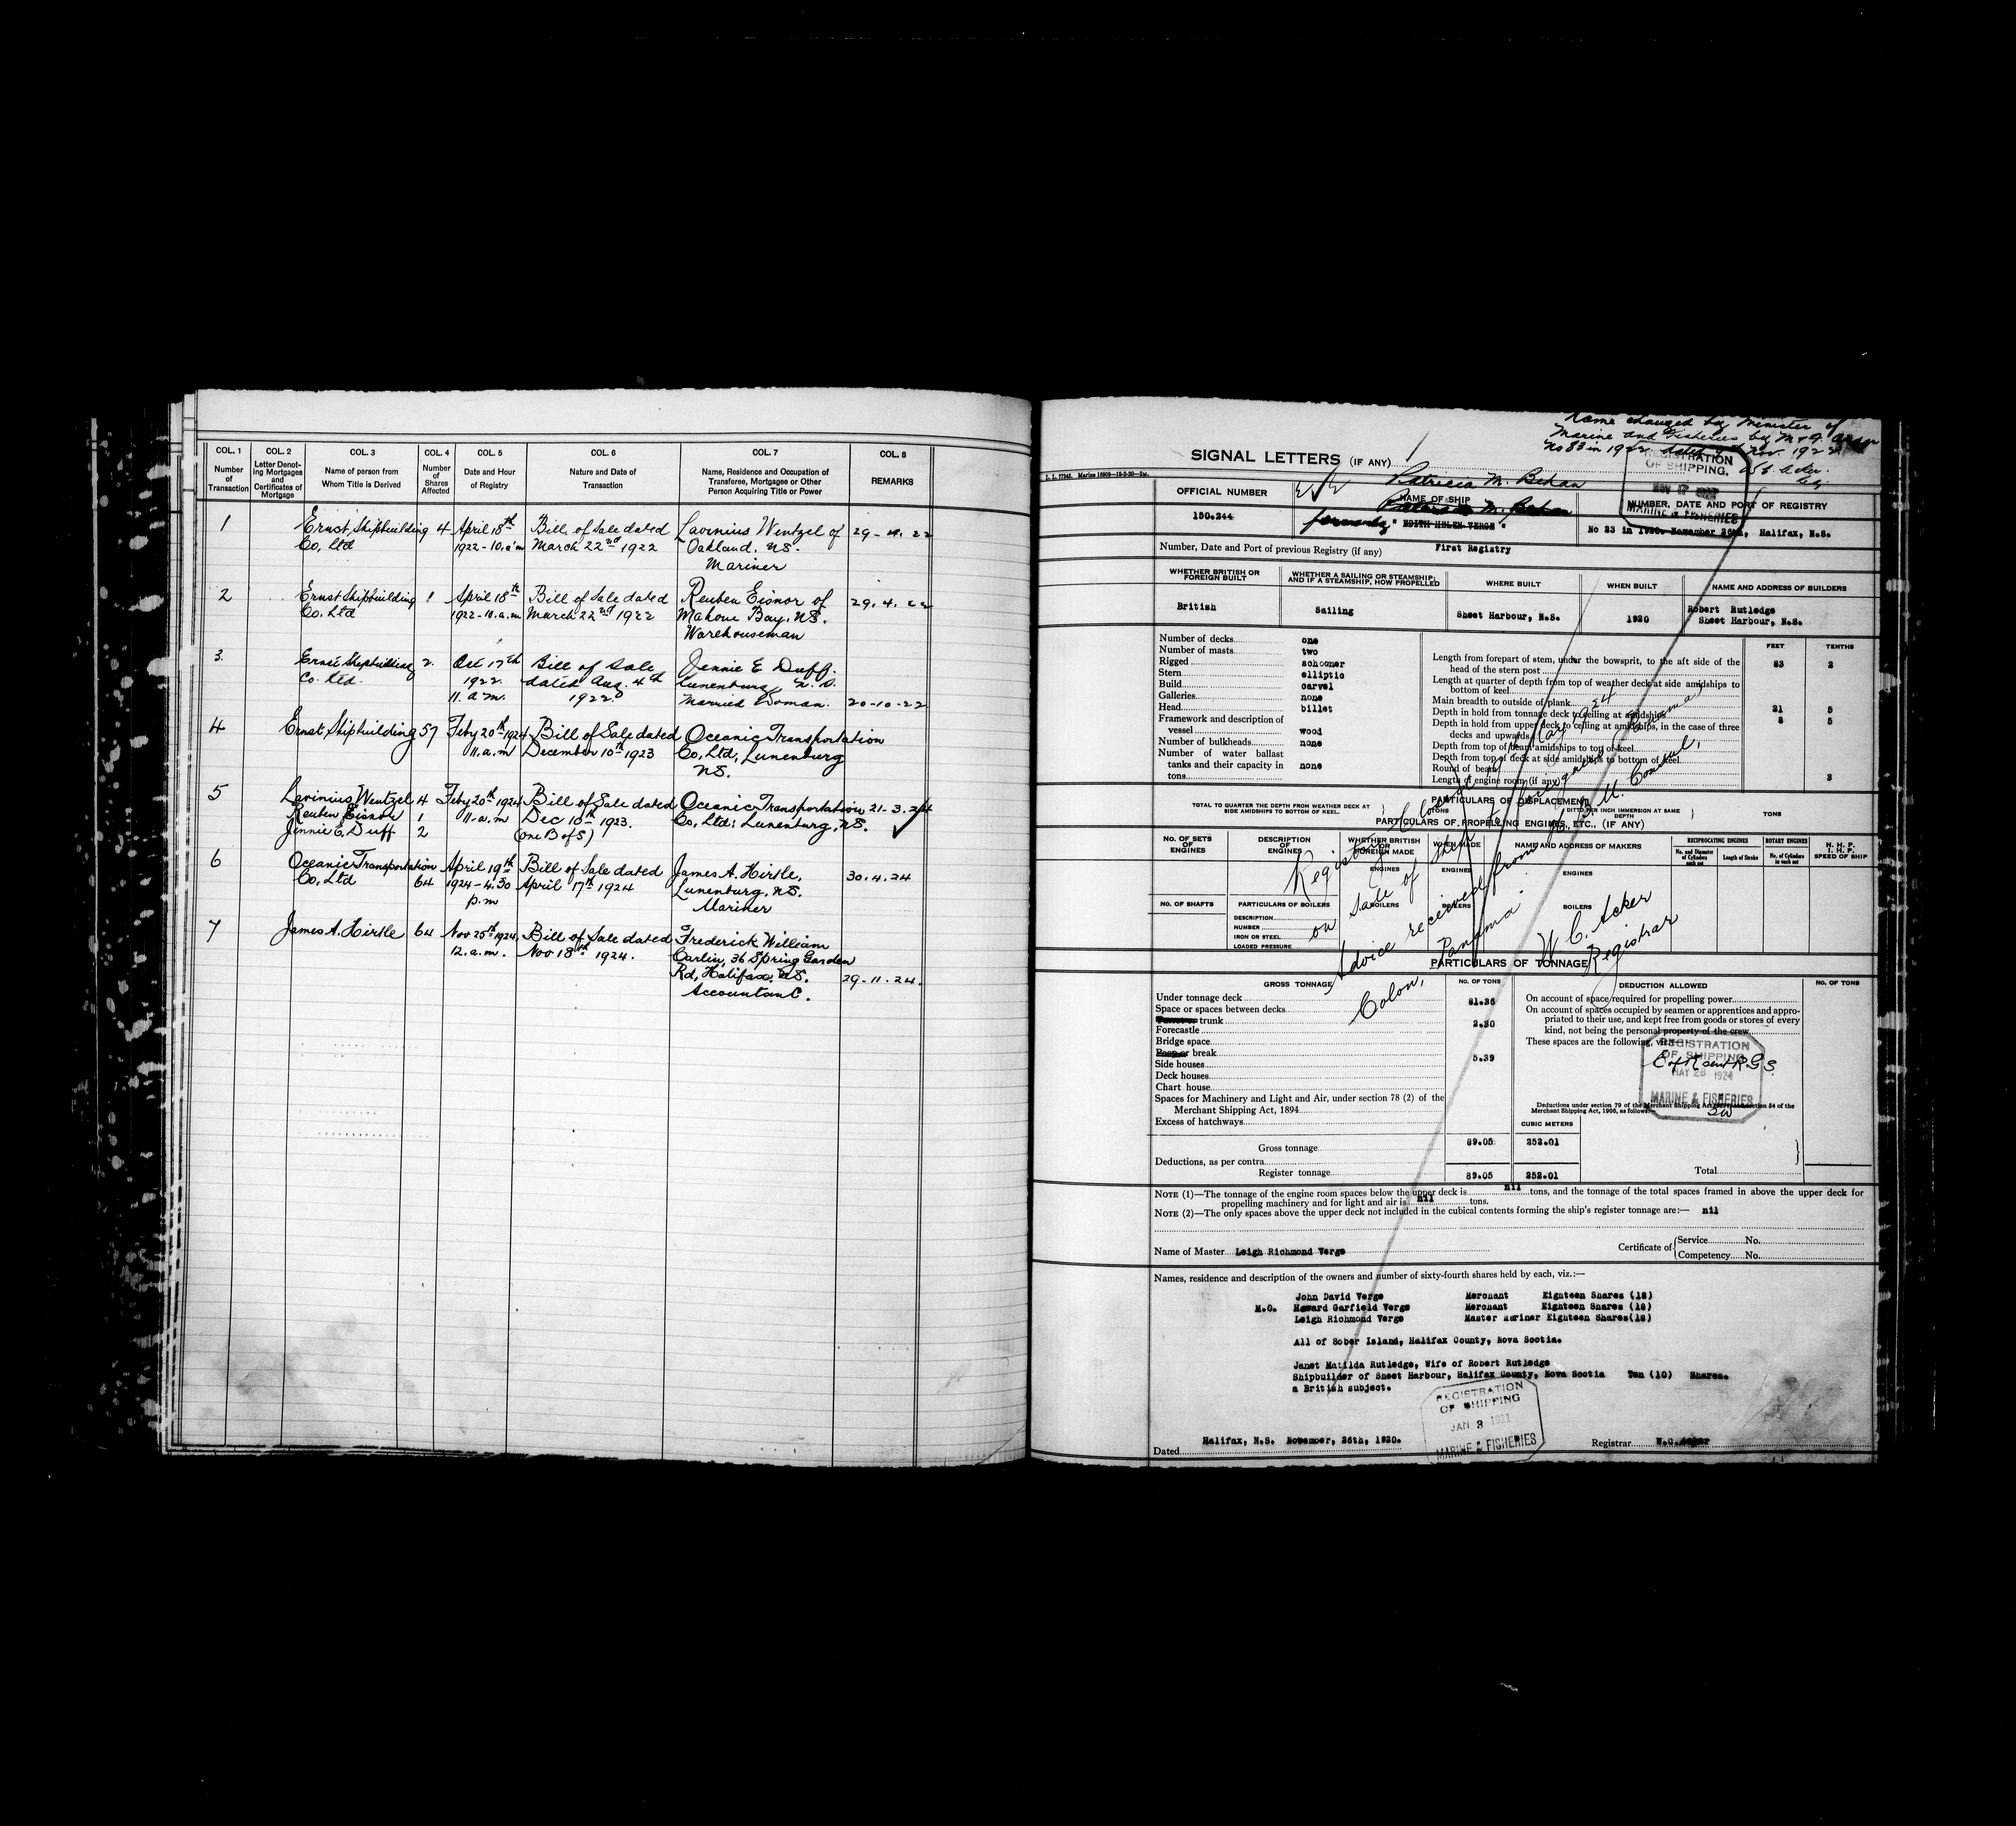 COL. 1
Number of Transaction
COL. 2
Letter Denoting Mortgages and Certificates of Mortgage
COL. 3
Name of person from Whom Title is Derived
COL. 4
Number of Shares Affected
COL. 5
Date and Hour of Registry
COL. 6
Nature and Date of Transaction
COL. 7
Name, Residence and Occupation of Transferee, Mortgagee or Other Person Acquiring Title or Power
COL. 8
REMARKS
1 Ernst Shipbuilding 4 April 18th Bill of Sale dated Lavinius Wentzel of 29-4.22
Co, Ltd 1922-10.a.m March 22nd 1922 Oakland. N.S.
Mariner
2 Ernst Shipbuilding 1 April 18th Bill of Sale dated Reuben Eisnor of 29.4.22
Co. Ltd 1922-10.a.m March 22nd 1922 Mahone Bay. N.S.
Warehouseman
3. Ernst Shipbuilding 2. Oct 17th Bill of Sale Jennie E Duff.
Co. Ltd. 1922. dated Aug. 4th Lunenburg, N.S.
11. a.m. 1922 Married Woman. 20-10-22
4 Ernst Shipbuilding 57 Feby 20th 1924 Bill of Sale dated Oceanic Transportation
11.a.m December 10th 1923 Co, Ltd, Lunenburg
N.S.
5 Lavinius Wentzel 4 Feby 20th 1924 Bill of Sale dated Oceanic Transportation 21-3.24
Reuben Eisnor 1 11-a.m Dec 10th 1923. Co, Ltd: Lunenburg, N.S.
Jennie E. Duff 2 (one B of S)
6 Oceanic Transportation April 19th Bill of Sale dated James A. Hirtle,
Co, Ltd 64 1924-4.30 April 17th 1924 Lunenburg, N.S. 30.4.24
p.m Mariner
7 James A. Hirtle 64 Nov 25th 1924, Bill of Sale dated Frederick William
12.a.m. Nov 18th 1924. Carlin, 36 Spring Garden
Rd, Halifax, N.S. 29-11.24.
Accountant.
Name changed by Minister of
Marine and Fisheries by M & F. order
No 83 in 1922 dated Nov. 1922
SIGNAL LETTERS (IF ANY)
Patricia M. Behan
OFFICIAL NUMBER
150.244
NAME OF SHIP
formerly "EDITH HELEN VERGE"
NUMBER, DATE AND PORT OF REGISTRY
No 23 in 1920. November 26th, Halifax, N.S.
REGISTRATION
OF SHIPPING.
MARINE & FISHERIES
Number, Date and Port of previous Registry (if any) First Registry
WHETHER BRITISH OR FOREIGN BUILT
WHETHER A SAILING OR STEAMSHIP; AND IF A STEAMSHIP, HOW PROPELLED
WHERE BUILT
WHEN BUILT
NAME AND ADDRESS OF BUILDERS
British Sailing Sheet Harbour, N.S. 1920 Robert Rutledge
Sheet Harbour, N.S.
Number of decks one
Number of masts two
Rigged schooner
Stern elliptic
Build carvel
Galleries none
Head billet
Framework and description of
vessel wood
Number of bulkheads none
Number of water ballast
tanks and their capacity in
tons none
FEET TENTHS
Length from forepart of stem, under the bowsprit, to the aft side of the
head of the stern post 83 2
Length at quarter of depth from top of weather deck at side amidships to
bottom of keel
Main breadth to outside of plank 21 5
Depth in hold from tonnage deck to ceiling at amidships 8 5
Depth in hold from upper deck to ceiling at amidships, in the case of three
decks and upwards
Depth from top of beam amidships to top of keel
Depth from top of deck at side amidships to bottom of keel
Round of beam 3
Length of engine room (if any)
PARTICULARS OF DISPLACEMENT
TOTAL TO QUARTER THE DEPTH FROM WEATHER DECK AT SIDE AMIDSHIPS TO BOTTOM OF KEEL.
TONS
DITTO PER INCH IMMERSION AT SAME DEPTH
TONS
PARTICULARS OF PROPELLING ENGINES, ETC., (IF ANY)
NO. OF SETS OF ENGINES
DESCRIPTION OF ENGINES
WHETHER BRITISH OR FOREIGN MADE
WHEN MADE
NAME AND ADDRESS OF MAKERS
RECIPROCATING ENGINES
No. and Diameter of Cylinders each set
Length of Stroke
ROTARY ENGINES
No. of Cylinders in each set
N. H. P.
I. H. P.
SPEED OF SHIP
ENGINES ENGINES ENGINES
NO. OF SHAFTS
PARTICULARS OF BOILERS
BOILERS BOILERS BOILERS
DESCRIPTION
NUMBER
IRON OR STEEL
LOADED PRESSURE
Registry Closed
on sale of ship to foreigners
Advice received from
Colon, Panama
W. C. Acker
Registrar
PARTICULARS OF TONNAGE
GROSS TONNAGE NO. OF TONS
Under tonnage deck 81.36
Space or spaces between decks
trunk 2.30
Forecastle
Bridge space
Poop or break 5.39
Side houses
Deck houses
Chart house
Spaces for Machinery and Light and Air, under section 78 (2) of the
Merchant Shipping Act, 1894
Excess of hatchways
CUBIC METERS
Gross tonnage 89.05 252.01
Deductions, as per contra
Register tonnage 89.05 252.01
DEDUCTION ALLOWED NO. OF TONS
On account of space required for propelling power
On account of spaces occupied by seamen or apprentices and appropriated
to their use, and kept free from goods or stores of every
kind, not being the personal property of the crew
These spaces are the following, viz:
REGISTRATION
OF SHIPPING
MAY 28 1924
MARINE & FISHERIES
Deductions under section 79 of the Merchant Shipping Act, 1894, and section 54 of the
Merchant Shipping Act, 1906, as follows:
Total
NOTE (1)—The tonnage of the engine room spaces below the upper deck is nil tons, and the tonnage of the total spaces framed in above the upper deck for
propelling machinery and for light and air is nil tons.
NOTE (2)—The only spaces above the upper deck not included in the cubical contents forming the ship's register tonnage are:— nil
Name of Master Leigh Richmond Verge
Certificate of Service No.
Competency No.
Names, residence and description of the owners and number of sixty-fourth shares held by each, viz.:—
John David Verge Merchant Eighteen Shares (18)
M.O. Howard Garfield Verge Merchant Eighteen Shares (18)
Leigh Richmond Verge Master Mariner Eighteen Shares(18)
All of Sober Island, Halifax County, Nova Scotia.
Janet Matilda Rutledge, Wife of Robert Rutledge
Shipbuilder of Sheet Harbour, Halifax County, Nova Scotia Ten (10) Shares.
a British subject.
REGISTRATION
OF SHIPPING
JAN 3 1921
MARINE & FISHERIES
Dated Halifax, N.S. November, 26th, 1920.
Registrar W.C. Acker